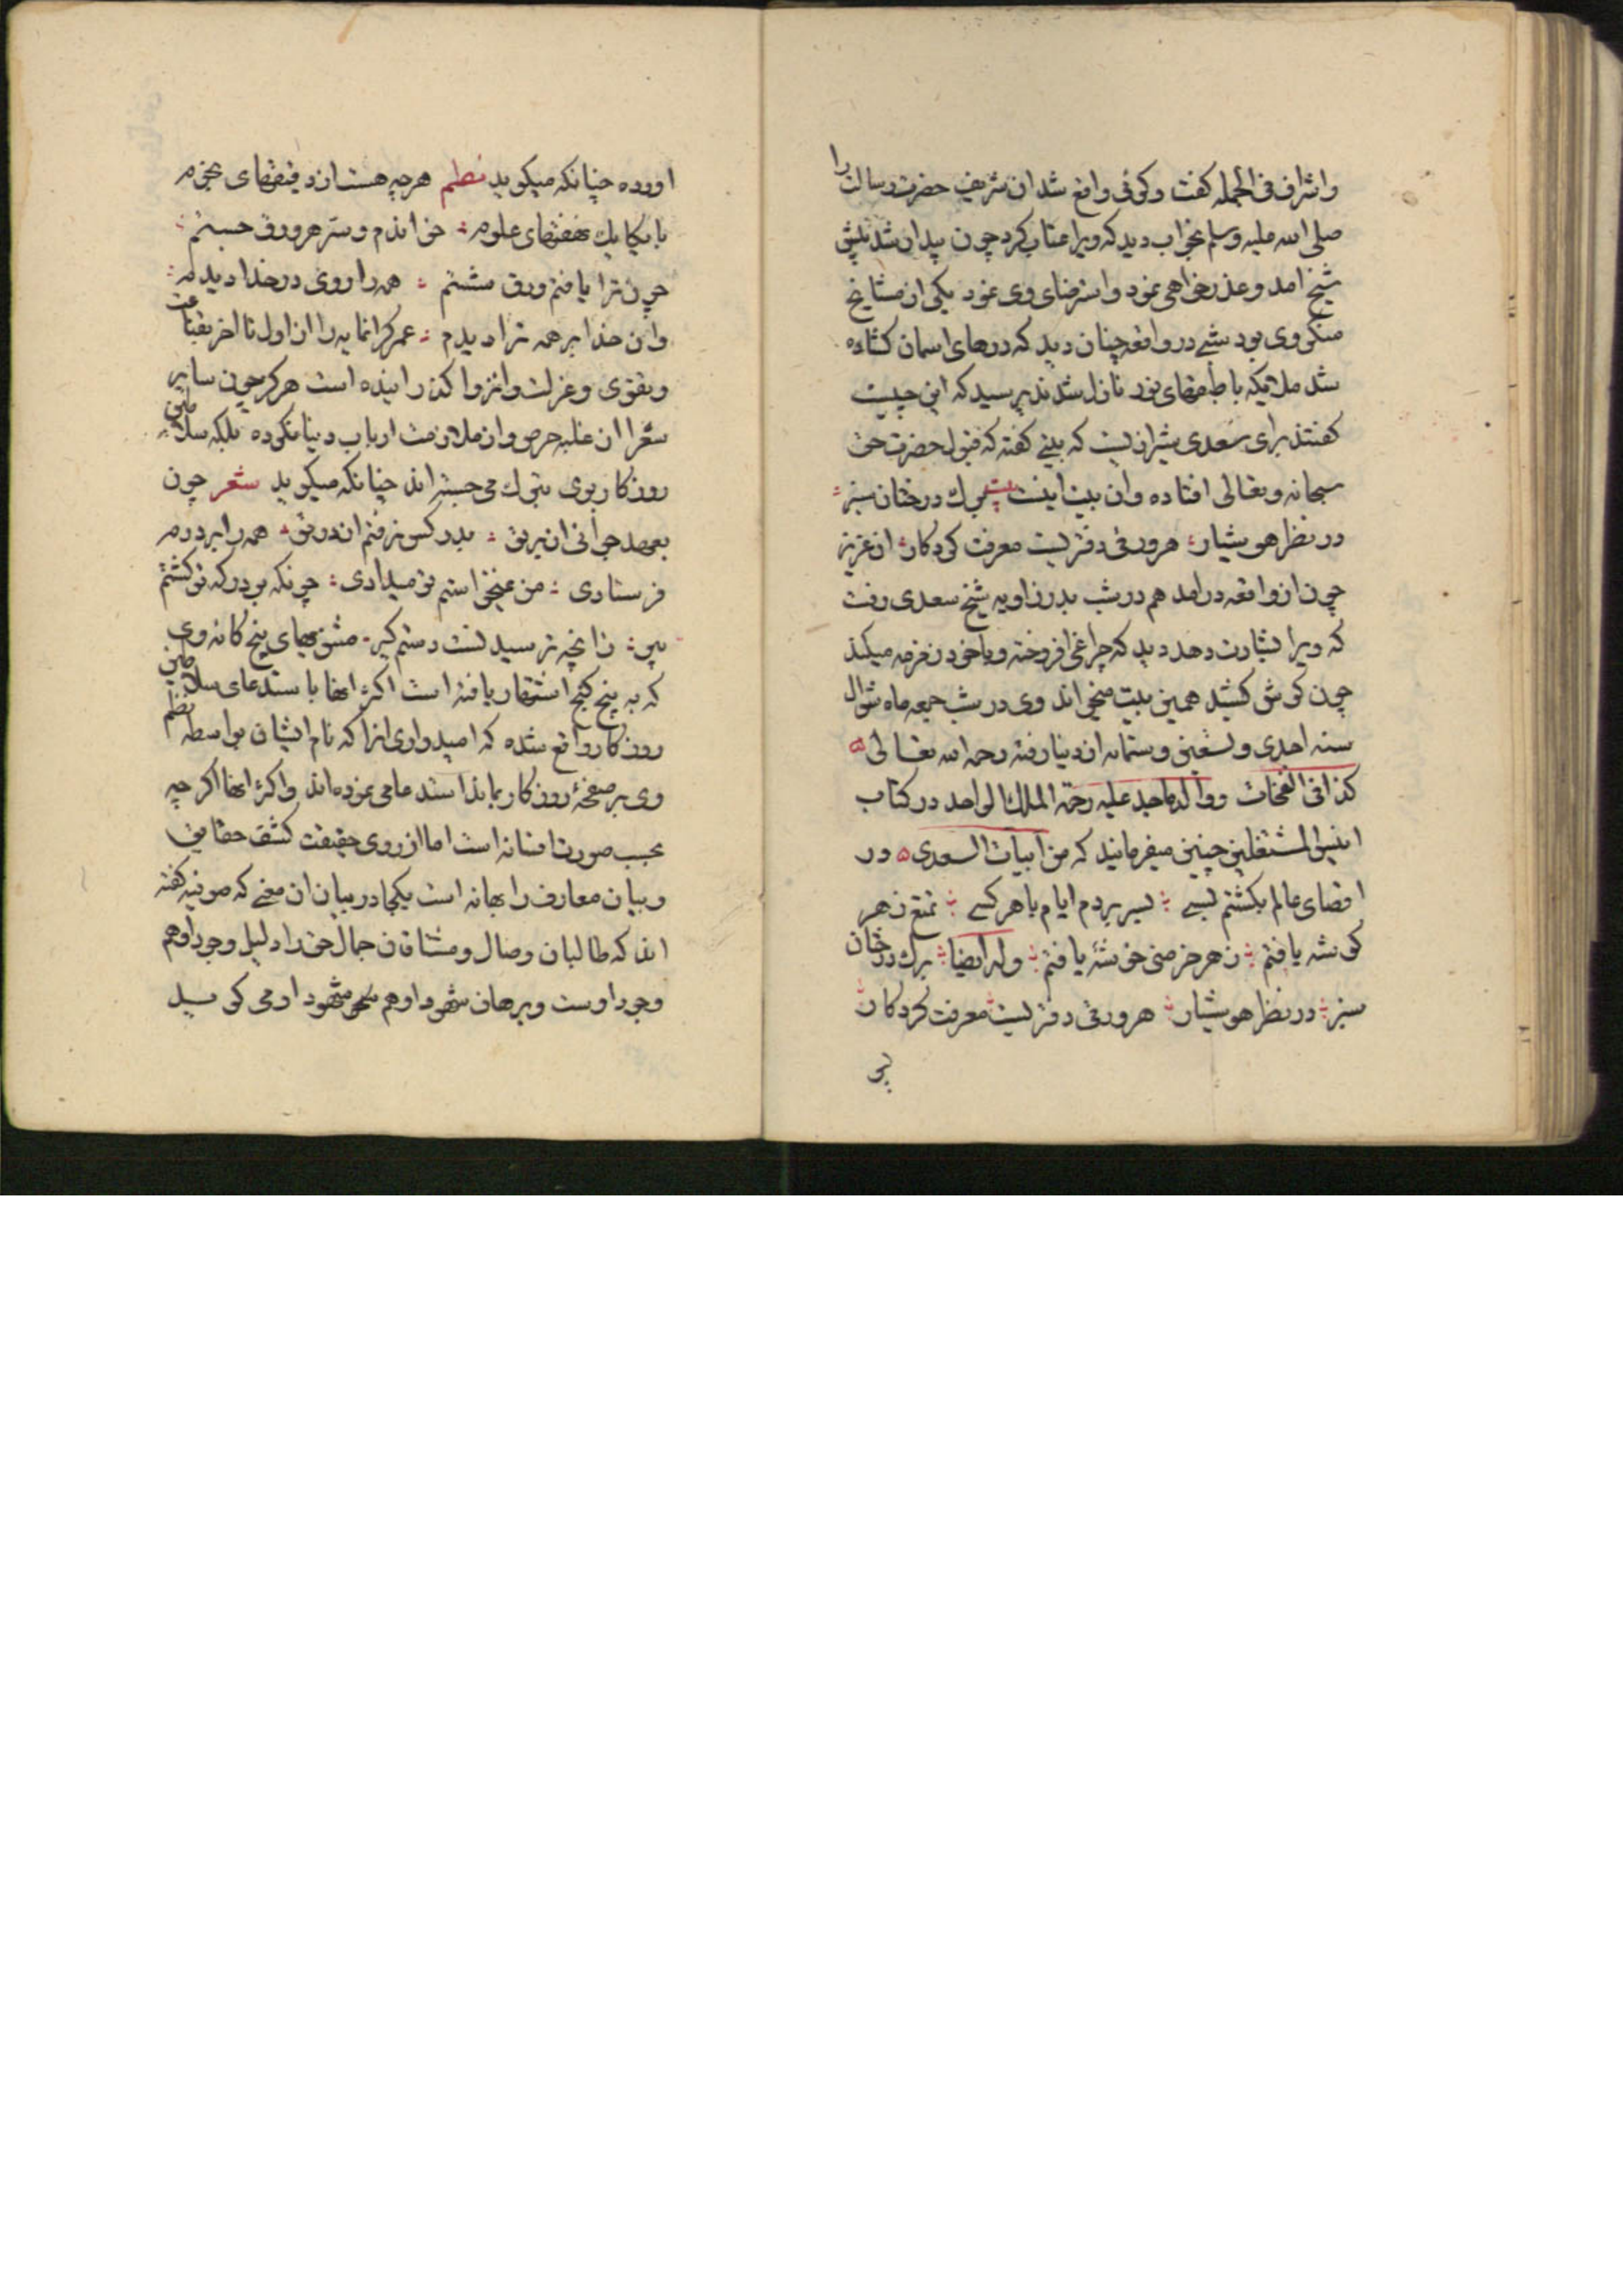 واشراف فی الجمله کفت وکوفی واقع شد ان شریف حضرت رسالت را
صلی الله علیه وسلم بخواب دید که ویرا عتاب کرد چون بیدار شد پیش
شیخ امد وعذر خواهی نمود واسترضای وی نمود یکی از مشایخ
منکر وی بود شبی در واقعه چنان دید که درهای اسمان کشاده
شد ملائیکه با طبقهای نور نازل شدند پرسید که این چیست
کفتند برای سعدی شیرازیست که بیتی کفته که قبول حضرت حق
سبحانه وتعالی افتاده وان بیت اینست بیت برك درختان سبز
در نظر هوشیار هر ورقی دفتریست معرفت کردکار ان عزیز
چون از واقعه درامد هم در شب بدر زاویه شیخ سعدی رفت
که ویرا بشارت دهد دید که چراغی افروخته وبا خود زمزمه میکند
چون کوش کشید همین بیت میخواند وی در شب جمعه ماه شوال
سنه احدی وتسعین وستمائه از دنیا رفته رحمه الله تعالی
کذا فی النفحات ووالد ماجد علیه رحمة الملك الواحد در کتاب
انیس المشتغلین چنین میفرمایند که من ابیات السعدی در
اقصای عالم بکشتم بسی بسر بردم ایام با هر کسی تمتع ز هر
کوشه یافتم ز هر خرمنی خوشهٔ یافتم وله ایضا برك درختان
سبز در نظر هوشیار هر ورقی دفتریست معرفت کردکار
اورده چنانکه میکوید نظم هرچه هست از دقیقهای نجوم
با یکایك نهفتهای علوم خواندم وسر هر ورق جستم
چون ترا یافتم ورق شستم همه را روی در خدا دیدم
وان خدا بر همه ترا دیدم عمر کرانمایه را از اول تا اخر بقناعت
وتقوی وعزلت وانزوا کذرانیده است هرکز چون سایر
شعرا از غلبه حرص واز ملازمت ارباب دنیا نکرده بلکه سلاطین
روزکار بوی تبرك می جسته اند چنانکه میکوید شعر چون
بعهد جوانی از بر تو بدر کس نرفتم از در تو همه را بر درم
فرستادی من نمیخواستم تو میدادی چونکه بر درکه تو کشتم
پیر زانچه ترسیدنیست دستم کیر مثنویهای پنج کانه وی
که به پنج کنج اشتهار یافته است اکثر انها باستدعای سلاطین
روزکار واقع شده که امیدواری انرا که نام ایشان بواسطه نظم
وی بر صفحهٔ روزکار بماند استدعا می نموده اند واکثر انها اکر چه
بحسب صورت افسانه است اما از روی حقیقت کشف حقایق
وبیان معارف را بهانه است یکجا در بیان ان معنی که صوفیه کفته
اند که طالبان وصال ومشتاقان جمال حق را دلیل وجود او هم
وجود اوست وبرهان شهود او هم شهود او می کوید